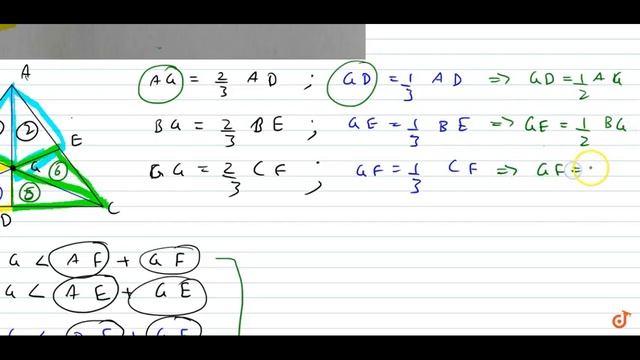 A
②
E
G
⑥
⑤
D
C
AG = 2/3 AD ; GD = 1/3 AD ⇒ GD = 1/2 AG
BG = 2/3 BE ; GE = 1/3 BE ⇒ GE = 1/2 BG
GG = 2/3 CF ; GF = 1/3 CF ⇒ GF =
G < AF + GF
G < AE + GE
doubtnut